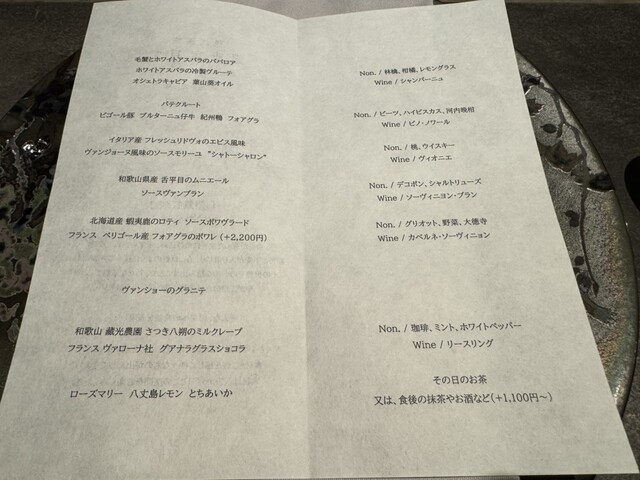 毛蟹とホワイトアスパラのババロア
ホワイトアスパラの冷製ヴルーテ
オシェトラキャビア 葉山葵オイル
パテクルート
ビゴール豚 ブルターニュ仔牛 紀州鴨 フォアグラ
イタリア産 フレッシュリドヴォのエピス風味
ヴァンジョーヌ風味のソースモリーユ "シャトーシャロン"
和歌山県産 舌平目のムニエール
ソースヴァンブラン
北海道産 蝦夷鹿のロティ ソースポワヴラード
フランス ペリゴール産 フォアグラのポワレ (+2,200円)
ヴァンショーのグラニテ
和歌山 蔵光農園 さつき八朔のミルクレープ
フランス ヴァローナ社 グアナラグラスショコラ
ローズマリー 八丈島レモン とちあいか
Non. / 林檎、柑橘、レモングラス
Wine / シャンパーニュ
Non. / ビーツ、ハイビスカス、河内晩柑
Wine / ピノ・ノワール
Non. / 桃、ウイスキー
Wine / ヴィオニエ
Non. / デコポン、シャルトリューズ
Wine / ソーヴィニヨン・ブラン
Non. / グリオット、野菜、大徳寺
Wine / カベルネ・ソーヴィニョン
Non. / 珈琲、ミント、ホワイトペッパー
Wine / リースリング
その日のお茶
又は、食後の抹茶やお酒など(+1,100円〜)